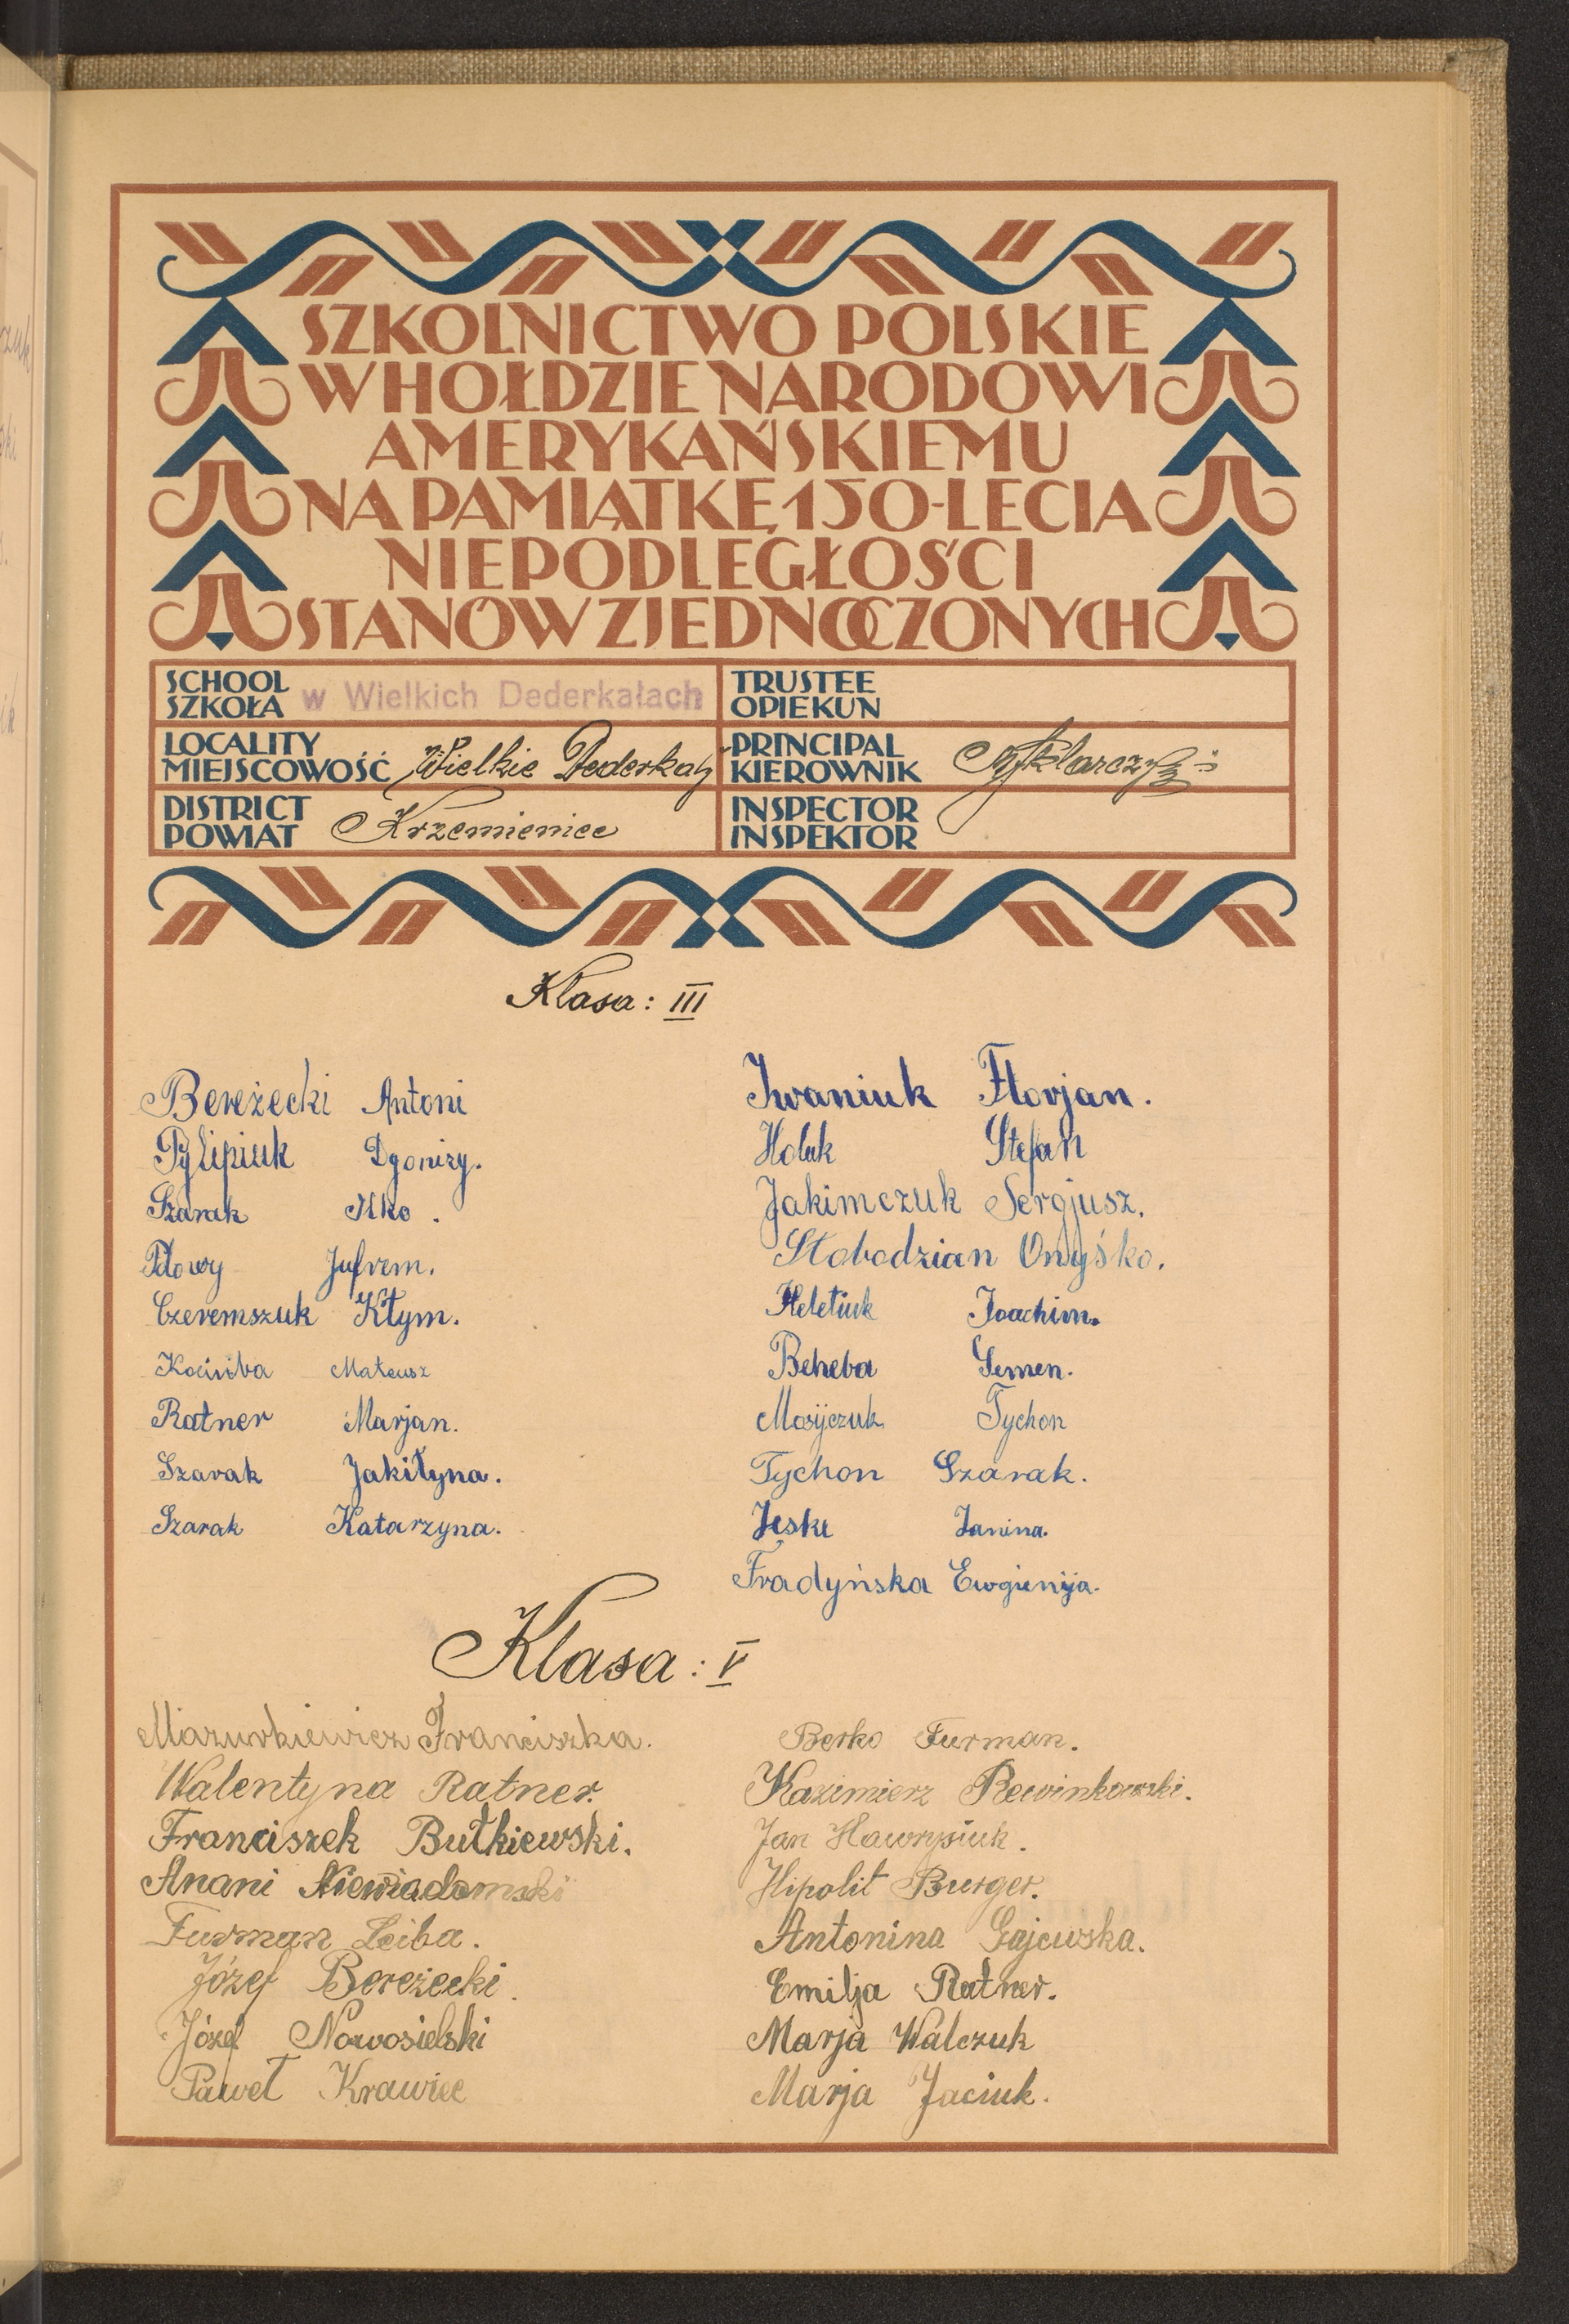 SZKOLNICTWO POLSKIE
W HOŁDZIE NARODOWI
AMERYKAŃSKIEMU
NA PAMIĄTKĘ 150-LECIA
NIEPODLEGŁOŚCI
STANÓW ZJEDNOCZONYCH
SCHOOL
SZKOŁA w Wielkich Dederkałach
TRUSTEE
OPIEKUN
LOCALITY
MIEJSCOWOŚĆ Wielkie Dederkały
PRINCIPAL
KIEROWNIK
DISTRICT
POWIAT Krzemieniec
INSPECTOR
INSPEKTOR
Klasa: III
Bereżecki Antoni
Pylipiuk Dyonizy.
Szarak Ilko.
Płowy Jufrem.
Czeremszuk Kłym.
Kociuba Mateusz
Ratner Marjan.
Szarak Jakiłyna.
Szarak Katarzyna.
Iwaniuk Florjan.
Holuk Stefan
Jakimczuk Sergjusz.
Słobodzian Onyśko.
Heletiuk Joachim.
Beheba Semen.
Mosijczuk Tychon
Tychon Szarak.
Jeske Janina.
Fradyńska Ewgienija.
Klasa: V
Mazurkiewicz Franciszka.
Walentyna Ratner.
Franciszek Butkiewski.
Anani Niewiadomski
Furman Leiba.
Józef Bereżecki.
Józef Nowosielski
Paweł Krawiec
Berko Furman.
Kazimierz Rewinkowski.
Jan Hawrysiuk.
Hipolit Burger.
Antonina Gajewska.
Emilja Ratner.
Marja Walczuk
Marja Jaciuk.